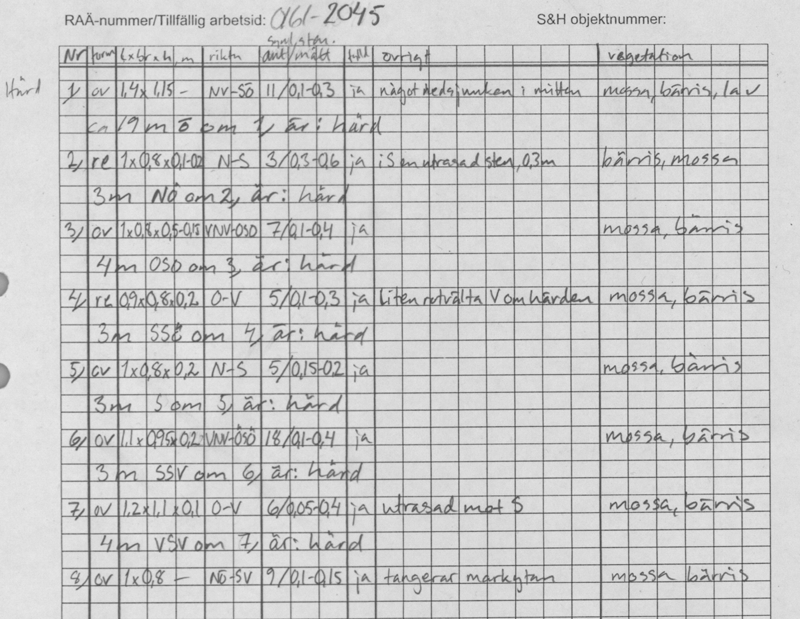 RAÄ-nummer/Tillfällig arbetsid: 0161-2045 S&H objektnummer:
synl. sten.
Nr form l x br x h, m riktn ant/mått fylld övrigt vegetation
Härd 1, ov 1,4x1,15- NV-SÖ 11/0,1-0,3 ja något nedsjunken i mitten mossa, bärris, lav
ca 19 m Ö om 1, är: härd
2, re 1x0,8x0,1-02 N-S 3/0,3-0,6 ja i S en utrasad sten, 0,3m bärris, mossa
3m NÖ om 2, är: härd
3, ov 1x0,8x0,5-0,15 VNV-OSO 7/0,1-0,4 ja mossa, bärris
4m OSO om 3, är: härd
4, re 0,9x0,8x0,2 O-V 5/0,1-0,3 ja liten rotvälta V om härden mossa, bärris
3m SSÖ om 4, är: härd
5, ov 1x0,8x0,2 N-S 5/0,15-02 ja mossa, bärris
3m S om 5, är: härd
6, ov 1,1x0,95x0,2 VNV-ÖSÖ 18/0,1-0,4 ja mossa, bärris
3 m SSV om 6, är: härd
7, ov 1,2x1,1x0,1 O-V 6/0,05-0,4 ja utrasad mot S mossa, bärris
4m VSV om 7, är: härd
8, ov 1x0,8 - NÖ-SV 9/0,1-0,15 ja tangerar markytan mossa bärris